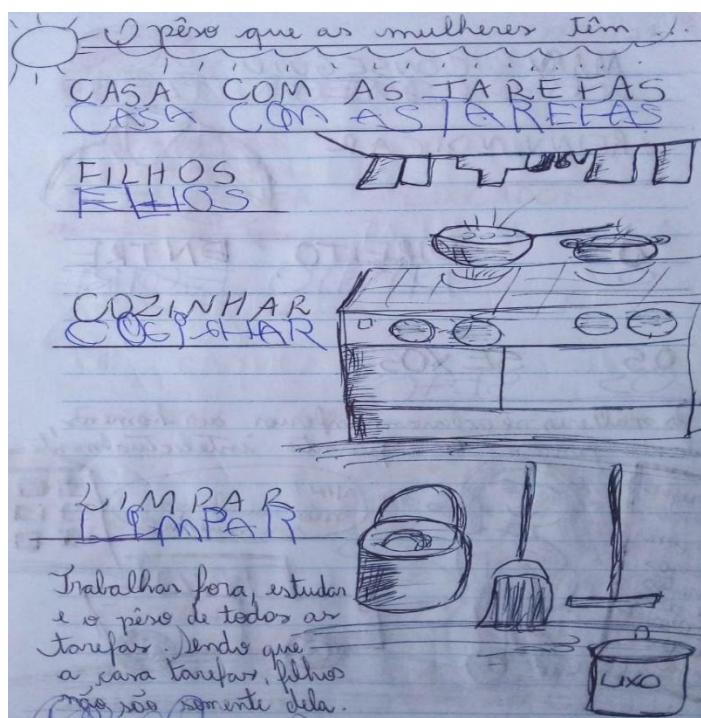 O pêso que as mulheres têm...
CASA COM AS TAREFAS
CASA COM AS TAREFAS
FILHOS
FILHOS
COZINHAR
LIMPAR
LIMPAR
Trabalhar fora, estudar
e o pêso de todas as
tarefas. Sendo que
a casa tarefas, filhos
não são somente dela.
LIXO